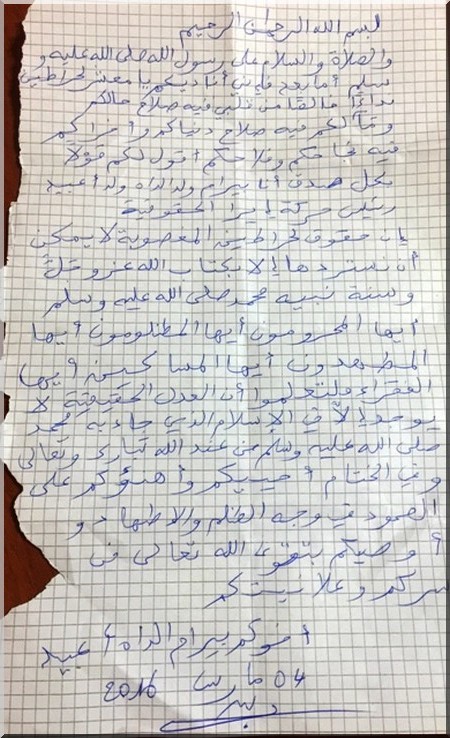 بسم الله الرحمان الرحيم
والصلاة والسلام على رسول الله صلى الله عليه و
سلم أما بعد فإني أناديكم يا معشر لحراطين
نداءا خالصا من قلبي فيه صلاح حالكم
و مآلكم فيه صلاح دنياكم وأخراكم
فيه نجاحكم وفلاحكم أقول لكم قولا
بكل صدق أنا بيرام ولد الداه ولد أعبيد
رئيس حركة إيرا الحقوقية
إن حقوق لحراطين المغصوبة لا يمكن
أن نستردها إلا بكتاب الله عز وجل
وسنة نبيه محمد صلى الله عليه وسلم
أيها المحرومون أيها المظلومون أيها
المضطهدون أيها المساكين أيها
الفقراء فلتعلموا أن العدل الحقيقية لا
يوجد إلا في الإسلام الذي جاء به محمد
صلى الله عليه وسلم من عند الله تبارك وتعالى
وفي الختام أحييكم وأهنؤكم على
الصمود في وجه الظلم والاظهاد و
أوصيكم بتقوى الله تعالى في
سركم وعلانيتكم
أخوكم بيرام الداه أعبيد
04 مارس 2016